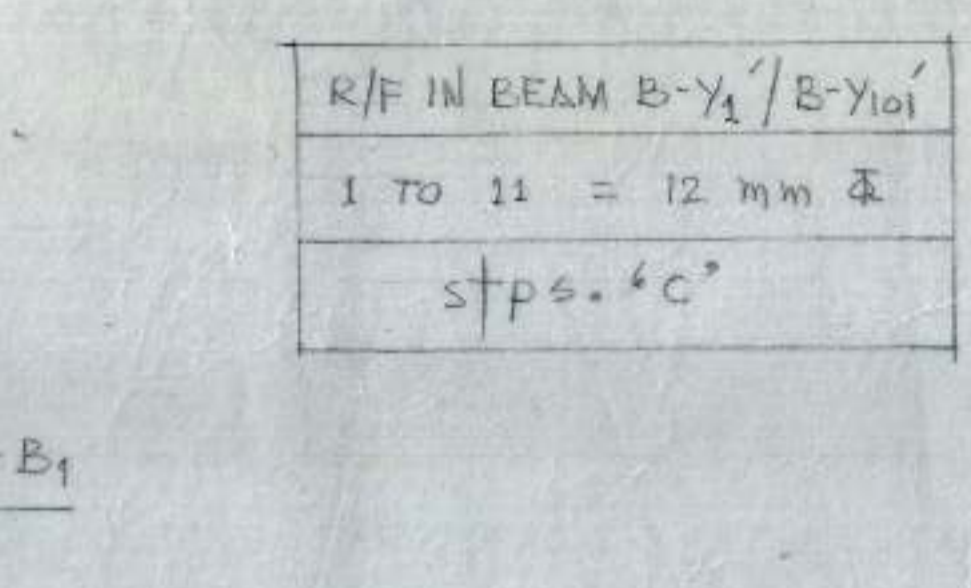 R/F IN BEAM B-Y₁'/B-Y₁₀₁'
1 TO 11 = 12 mm Φ
stps. 'C'
B₁